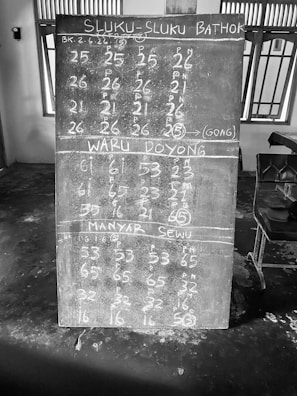 SLUKU-SLUKU BATHOK
BK. 2.6.2.6
P P PN
25 25 25 26
26 26 26 21
21 21 21 26
26 26 26 25 → (GONG)
WARU DOYONG
61 61 53 23
61 65 25
35 16 21 65
MANYAR SEWU
P N
53 53 53 65
65 65 65 32
32 32 32 16
16 16 16 53